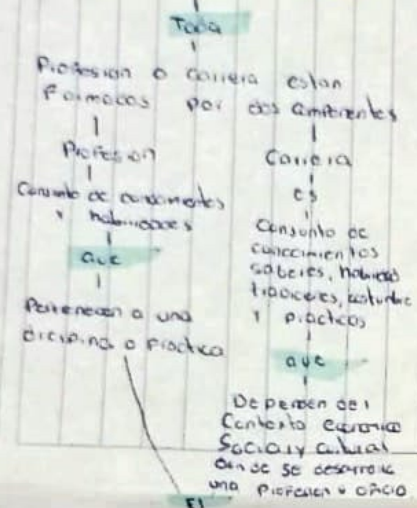 Toda
Profesion o carrera estan
Formados por dos componentes
Profesion
Conjunto de conocimientos
y habilidades
que
Pertenecen a una
diciplina o practica
Carrera
es
Conjunto de
conocimientos
saberes, habilidades
tradiciones, costumbre
y practicas
que
Dependen del
Contexto economico
Social y cultural
donde se desarrolla
una profesion u oficio
El